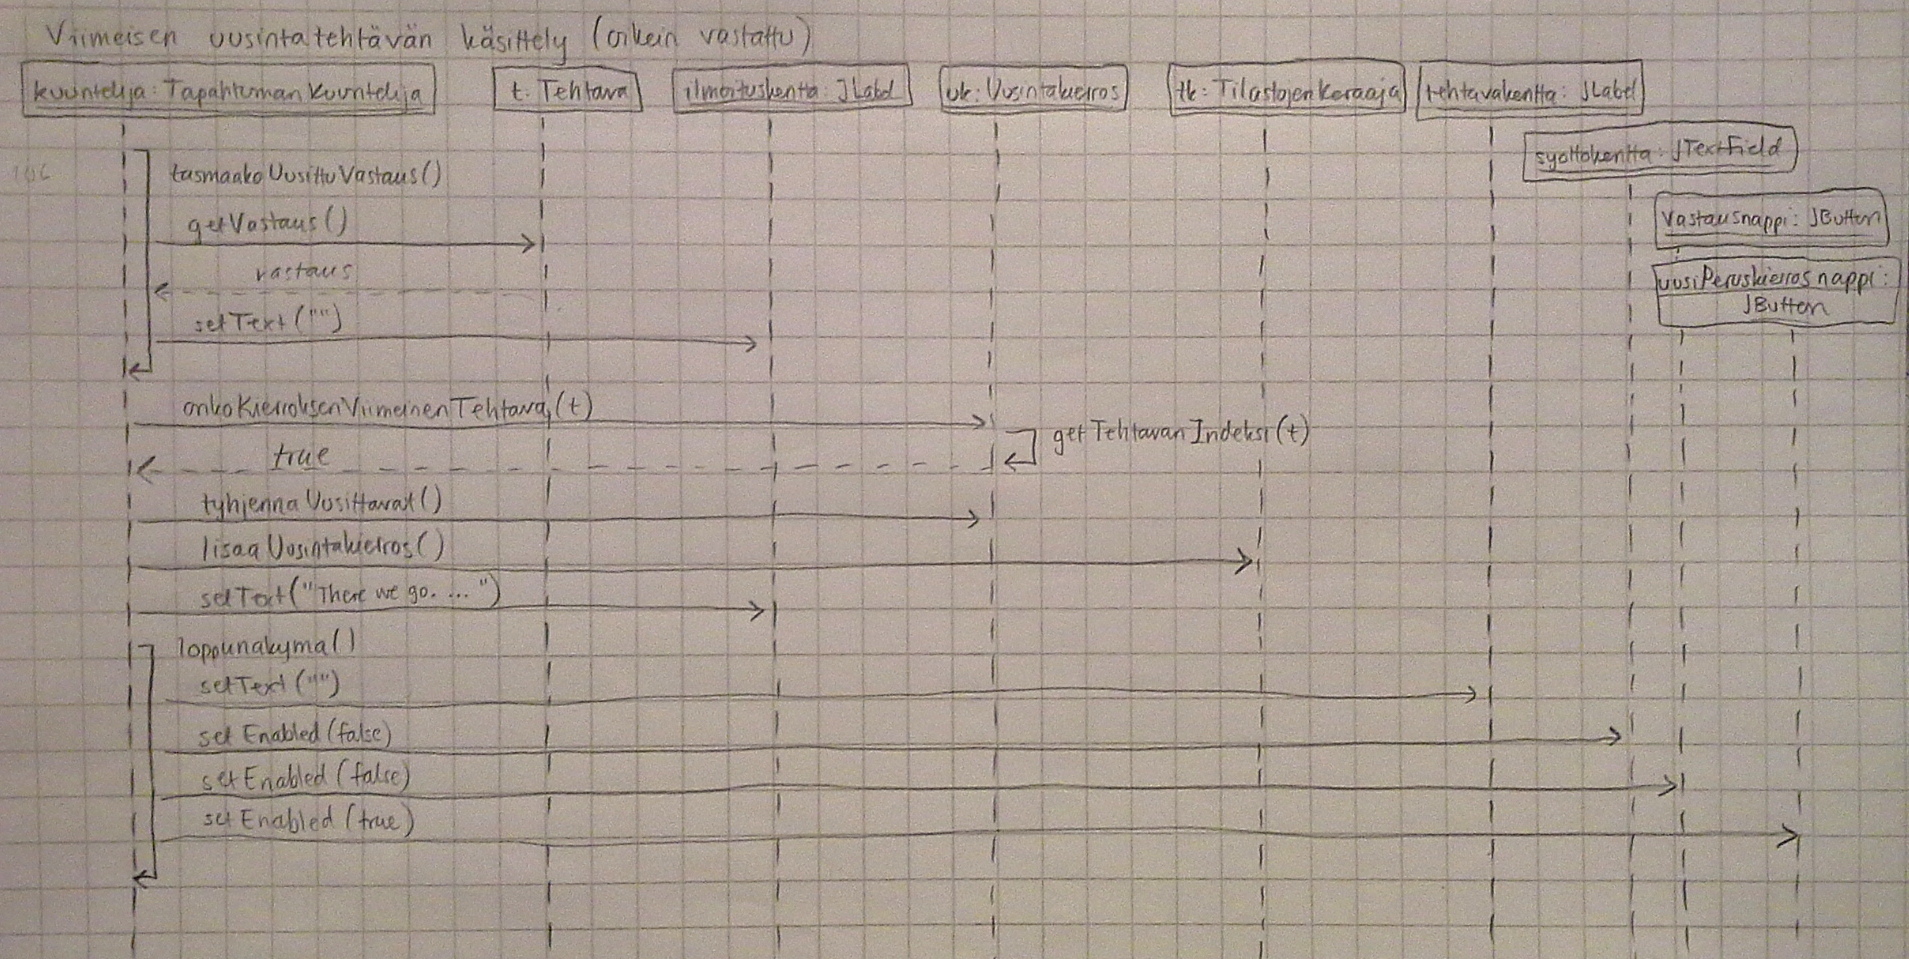 Viimeisen uusintatehtävän käsittely (oikein vastattu)
kuuntelija: TapahtumanKuuntelija
t: Tehtava
ilmoituskentta: JLabel
uk: Uusintakierros
tk: TilastojenKeraaja
tehtavakentta: JLabel
syottokentta: JTextField
Vastausnappi: JButton
uusiPeruskierrosnappi:
JButton
tasmaakoUusittuVastaus()
getVastaus()
vastaus
setText("")
onkoKierroksenViimeinenTehtava(t)
getTehtavanIndeksi(t)
true
tyhjennaUusittavat()
lisaaUusintakierros()
setText("There we go. ...")
loppunakyma()
setText("")
setEnabled(false)
setEnabled(false)
setEnabled(true)